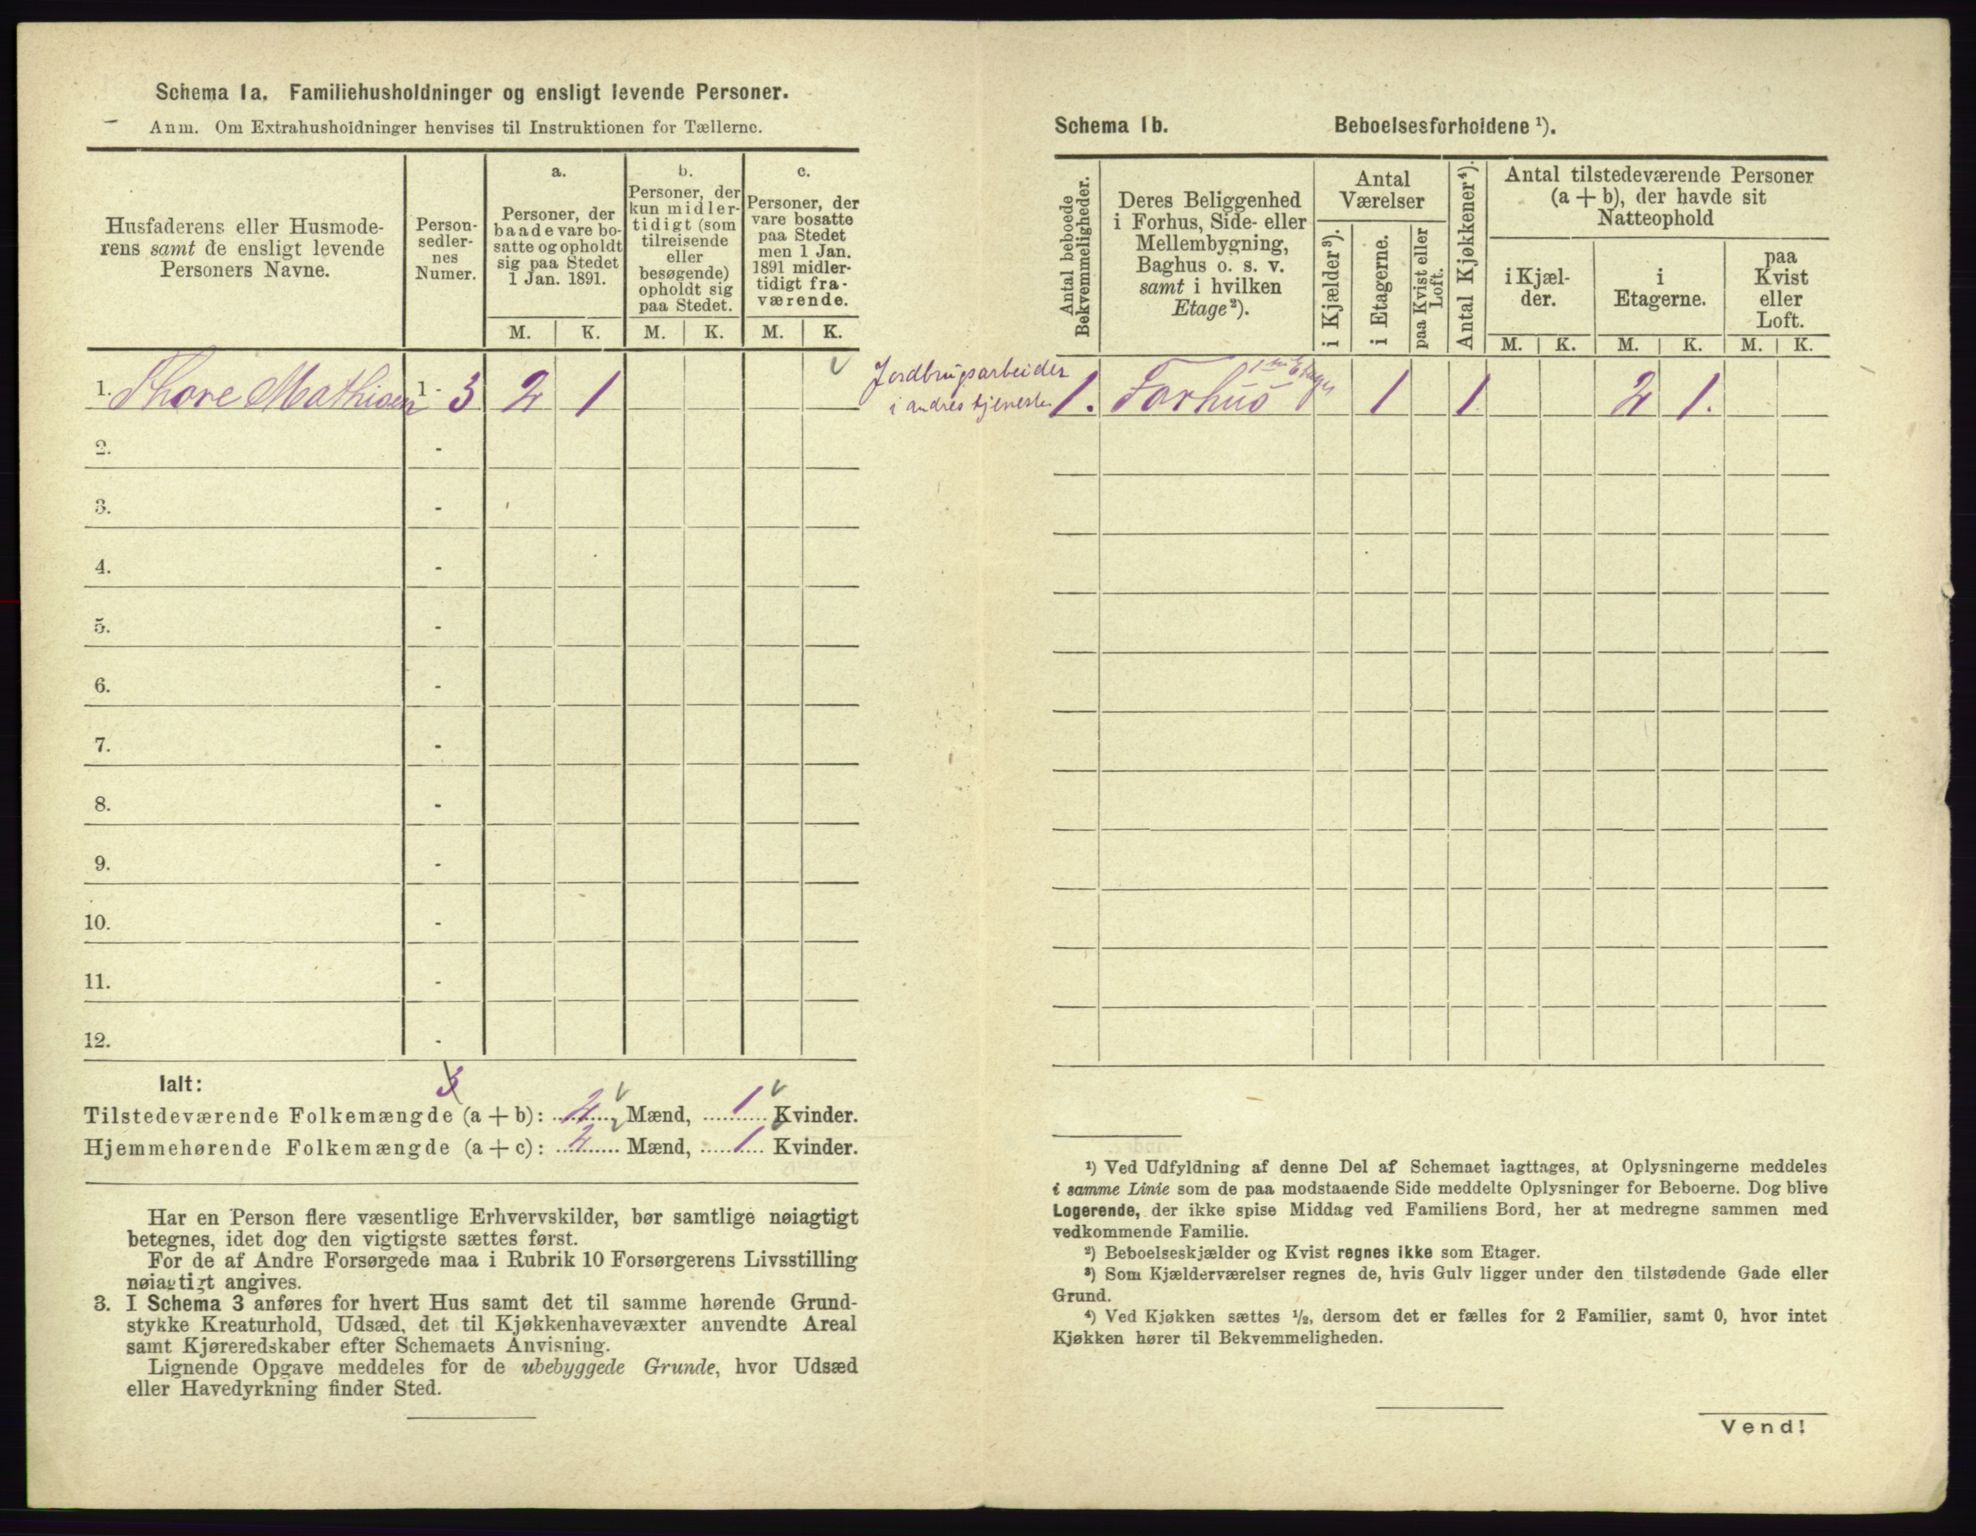 Schema 1a. Familiehusholdninger og ensligt levende Personer.
Anm. Om Extrahusholdninger henvises til Instruktionen for Tællerne.
Husfaderens eller Husmode-
rens samt de ensligt levende
Personers Navne.
Person-
sedler-
nes
Numer.
a.
Personer, der
baade vare bo-
satte og opholdt
sig paa Stedet
1 Jan. 1891.
b.
Personer, der
kun midler-
tidigt (som
tilreisende
eller
besøgende)
opholdt sig
paa Stedet.
c.
Personer, der
vare bosatte
paa Stedet
men 1 Jan.
1891 midler-
tidigt fra-
værende.
M. K. M. K. M. K.
1. Thore Mathisen 1 - 3 2 1
2. -
3. -
4. -
5. -
6. -
7. -
8. -
9. -
10. -
11. -
12. -
Ialt: 3
Tilstedeværende Folkemængde (a + b): 2 Mænd, 1 Kvinder.
Hjemmehørende Folkemængde (a + c): 2 Mænd, 1 Kvinder.
Har en Person flere væsentlige Erhvervskilder, bør samtlige nøiagtigt
betegnes, idet dog den vigtigste sættes først.
For de af Andre Forsørgede maa i Rubrik 10 Forsørgerens Livsstilling
nøiagtigt angives.
3. I Schema 3 anføres for hvert Hus samt det til samme hørende Grund-
stykke Kreaturhold, Udsæd, det til Kjøkkenhavevæxter anvendte Areal
samt Kjøreredskaber efter Schemaets Anvisning.
Lignende Opgave meddeles for de ubebyggede Grunde, hvor Udsæd
eller Havedyrkning finder Sted.
Schema 1b. Beboelsesforholdene ¹).
Antal beboede
Bekvemmeligheder.
Deres Beliggenhed
i Forhus, Side- eller
Mellembygning,
Baghus o. s. v.
samt i hvilken
Etage²).
Antal
Værelser
i Kjælder³).
i Etagerne.
paa Kvist eller
Loft.
Antal Kjøkkener⁴).
Antal tilstedeværende Personer
(a + b), der havde sit
Natteophold
i Kjæl-
der.
i
Etagerne.
paa
Kvist
eller
Loft.
M. K. M. K. M. K.
Jordbrugsarbeider
i andres tjeneste
1. Forhus 1 Etage 1 1 2 1.
¹) Ved Udfyldning af denne Del af Schemaet iagttages, at Oplysningerne meddeles
i samme Linie som de paa modstaaende Side meddelte Oplysninger for Beboerne. Dog blive
Logerende, der ikke spise Middag ved Familiens Bord, her at medregne sammen med
vedkommende Familie.
²) Beboelseskjælder og Kvist regnes ikke som Etager.
³) Som Kjælderværelser regnes de, hvis Gulv ligger under den tilstødende Gade eller
Grund.
⁴) Ved Kjøkken sættes ½, dersom det er fælles for 2 Familier, samt 0, hvor intet
Kjøkken hører til Bekvemmeligheden.
Vend!